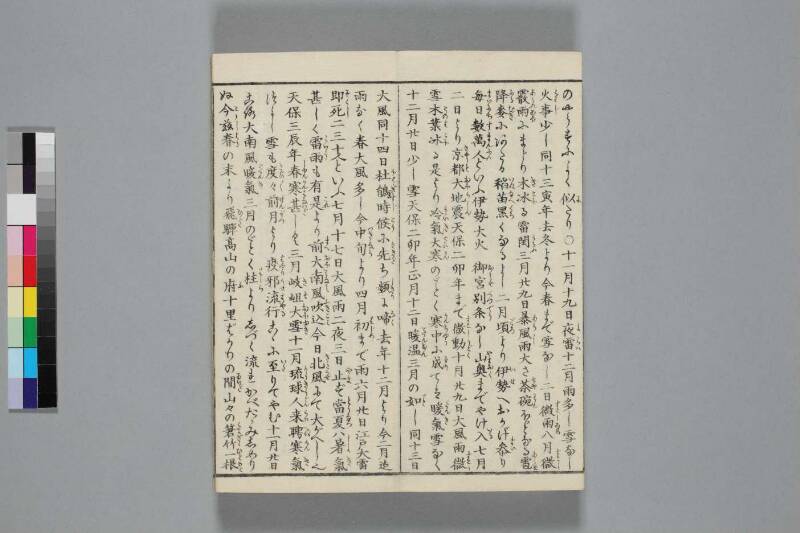 のごとくすゞふよく似たり〇十一月十九日夜雷十二月雨多し雪なし
火事少し同十三寅年去冬より今春まで雪なし二日微雨八月微
霰雨にまじり木氷る雷聞三月廿九日暴風雨大さ茶碗ほどなる雹
降麥に河くる稲苗黒くなるよし二月頃より伊勢へおかげ参り
毎日数萬人といふ伊勢大火 御宮別条なし山奥までやけ入七月
二日より京都大地震天保二卯年まで微動十月廿九日大風雨微
雪木葉氷る是より冷気大寒のごとく寒中に成ては暖気雪なく
十二月廿日少し雪天保二卯年正月十二日暖温三月の如し同十三日
大風同十四日杜鵑時候に先ち頻に啼去年十二月より今二月迄
雨なく春大風多し今中旬より四月初まで雨六月廿日江戸大雷
即死二三十人といふ七月十七日大風雨二夜三日止ず當夏ハ暑気
甚しく雷雨も有是より前大南風吹込今日北風にて大かへしといふ
天保三辰年春寒甚し三月岐岨大雪十一月琉球人来聘寒気
つよし雪も度々前月より疫邪流行こゝに至りてやむ十一月廿日
ころ大南風暖気三月のごとく柱よりしづく流れかべたゝみしめり
ぬ今茲春の末より飛騨高山の府十里ばかりの間山々の箸竹一根